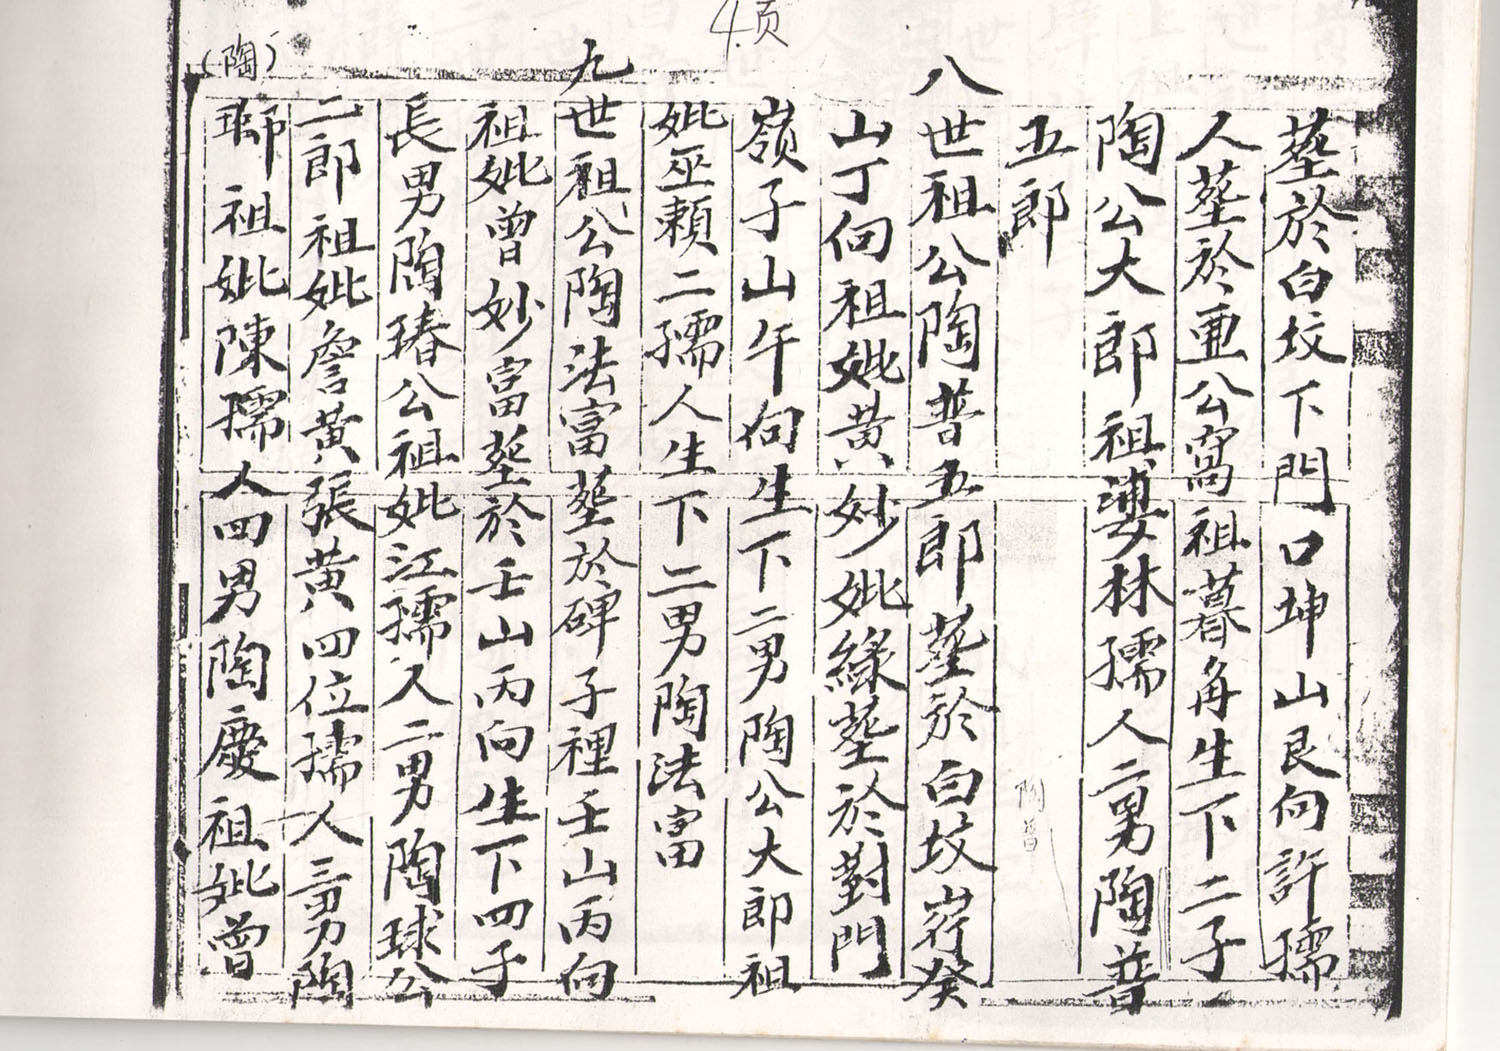 4页
(陶)
塟於白坟下門口坤山艮向許孺
人塟於亜公窩祖暮角生下二子
陶公大郎祖婆林孺人二男陶普
五郎
陶普
八世祖公陶普五郎塟於白坟崗癸
山丁向祖妣黄妙妣緣塟於對門
嶺子山午向生下二男陶公大郎祖
妣巫賴二孺人生下二男陶法富
九世祖公陶法富塟於碑子裡壬山丙向
祖妣曾妙富塟於壬山丙向生下四子
長男陶瑃公祖妣江孺人二男陶球公
二郎祖妣詹黄張黄四位孺人三男陶
瑯祖妣陳孺人四男陶慶祖妣曾